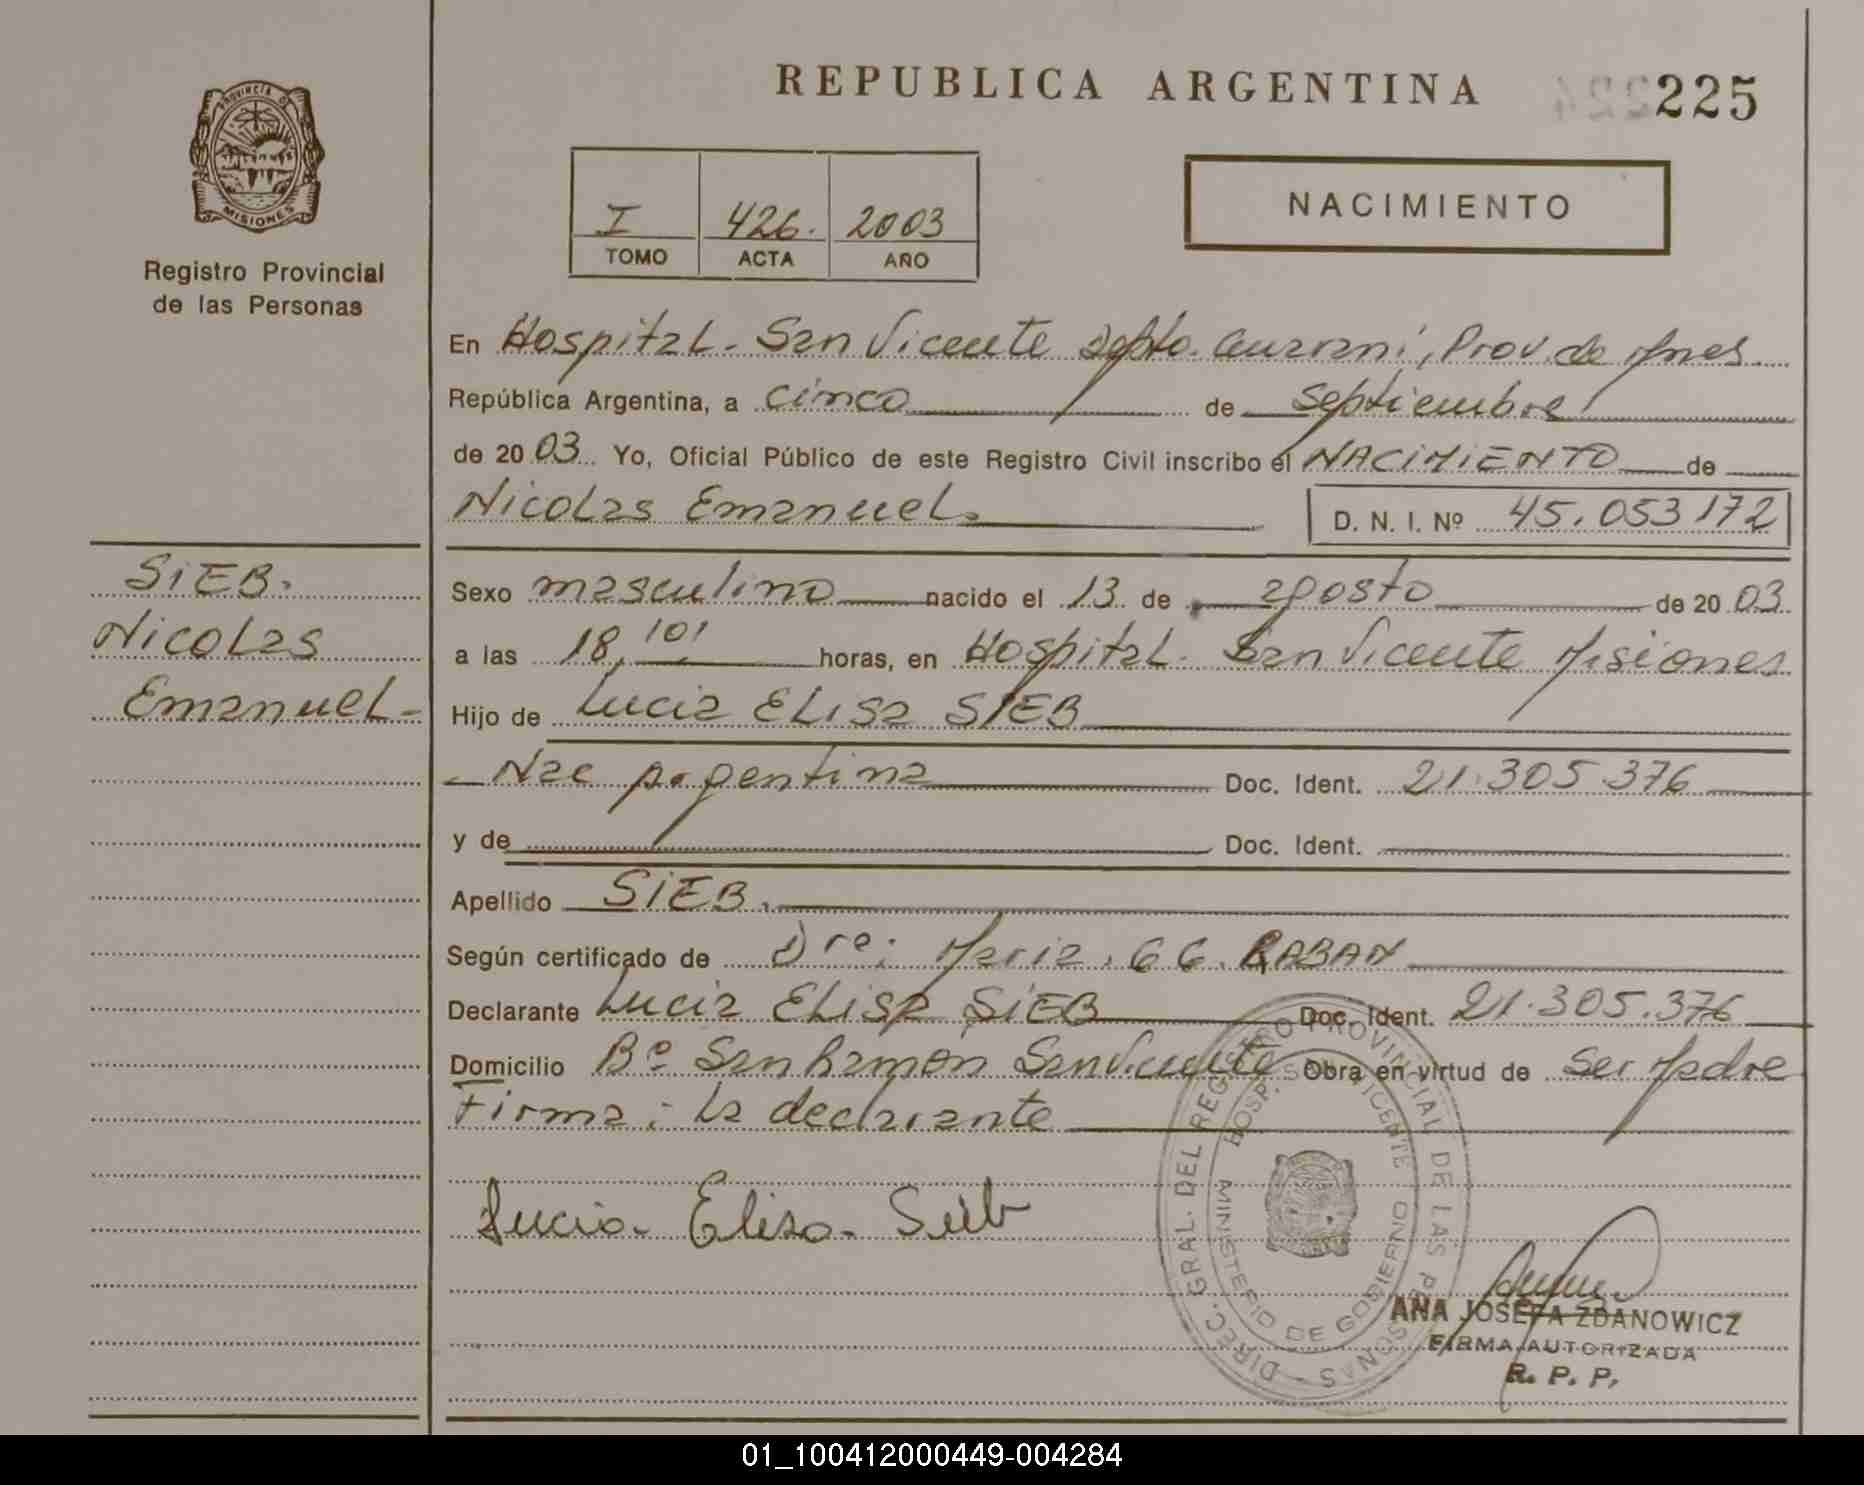 REPUBLICA ARGENTINA
225
PROVINCIA DE MISIONES
Registro Provincial
de las Personas
I 426. 2003
TOMO ACTA AÑO
NACIMIENTO
En Hospital - San Vicente Depto. Guaraní, Prov. de Mnes.
República Argentina, a cinco de Septiembre
de 2003 Yo, Oficial Público de este Registro Civil inscribo el NACIMIENTO de
Nicolas Emanuel. D. N. I. Nº 45.053172
SIEB.
Nicolas
Emanuel-
Sexo masculino nacido el 13 de agosto de 2003
a las 18,101 horas, en Hospital - San Vicente Misiones
Hijo de Lucia Elisa SIEB
- Nac Argentina Doc. Ident. 21.305.376
y de Doc. Ident.
Apellido SIEB.
Según certificado de Dra: Maria. G G.
Declarante Lucia Elisa SIEB Doc. Ident. 21.305.376
Domicilio Bº San Ramon San Vicente Obra en virtud de Ser Madre
Firma: La declarante
Lucia - Elisa - Sieb
DIREC. GRAL. DEL REGISTRO PROVINCIAL DE LAS PERSONAS -
HOSP. SAN VICENTE
MINISTERIO DE GOBIERNO
ANA JOSEFA ZDANOWICZ
FIRMA AUTORIZADA
R. P. P.
01_100412000449-004284